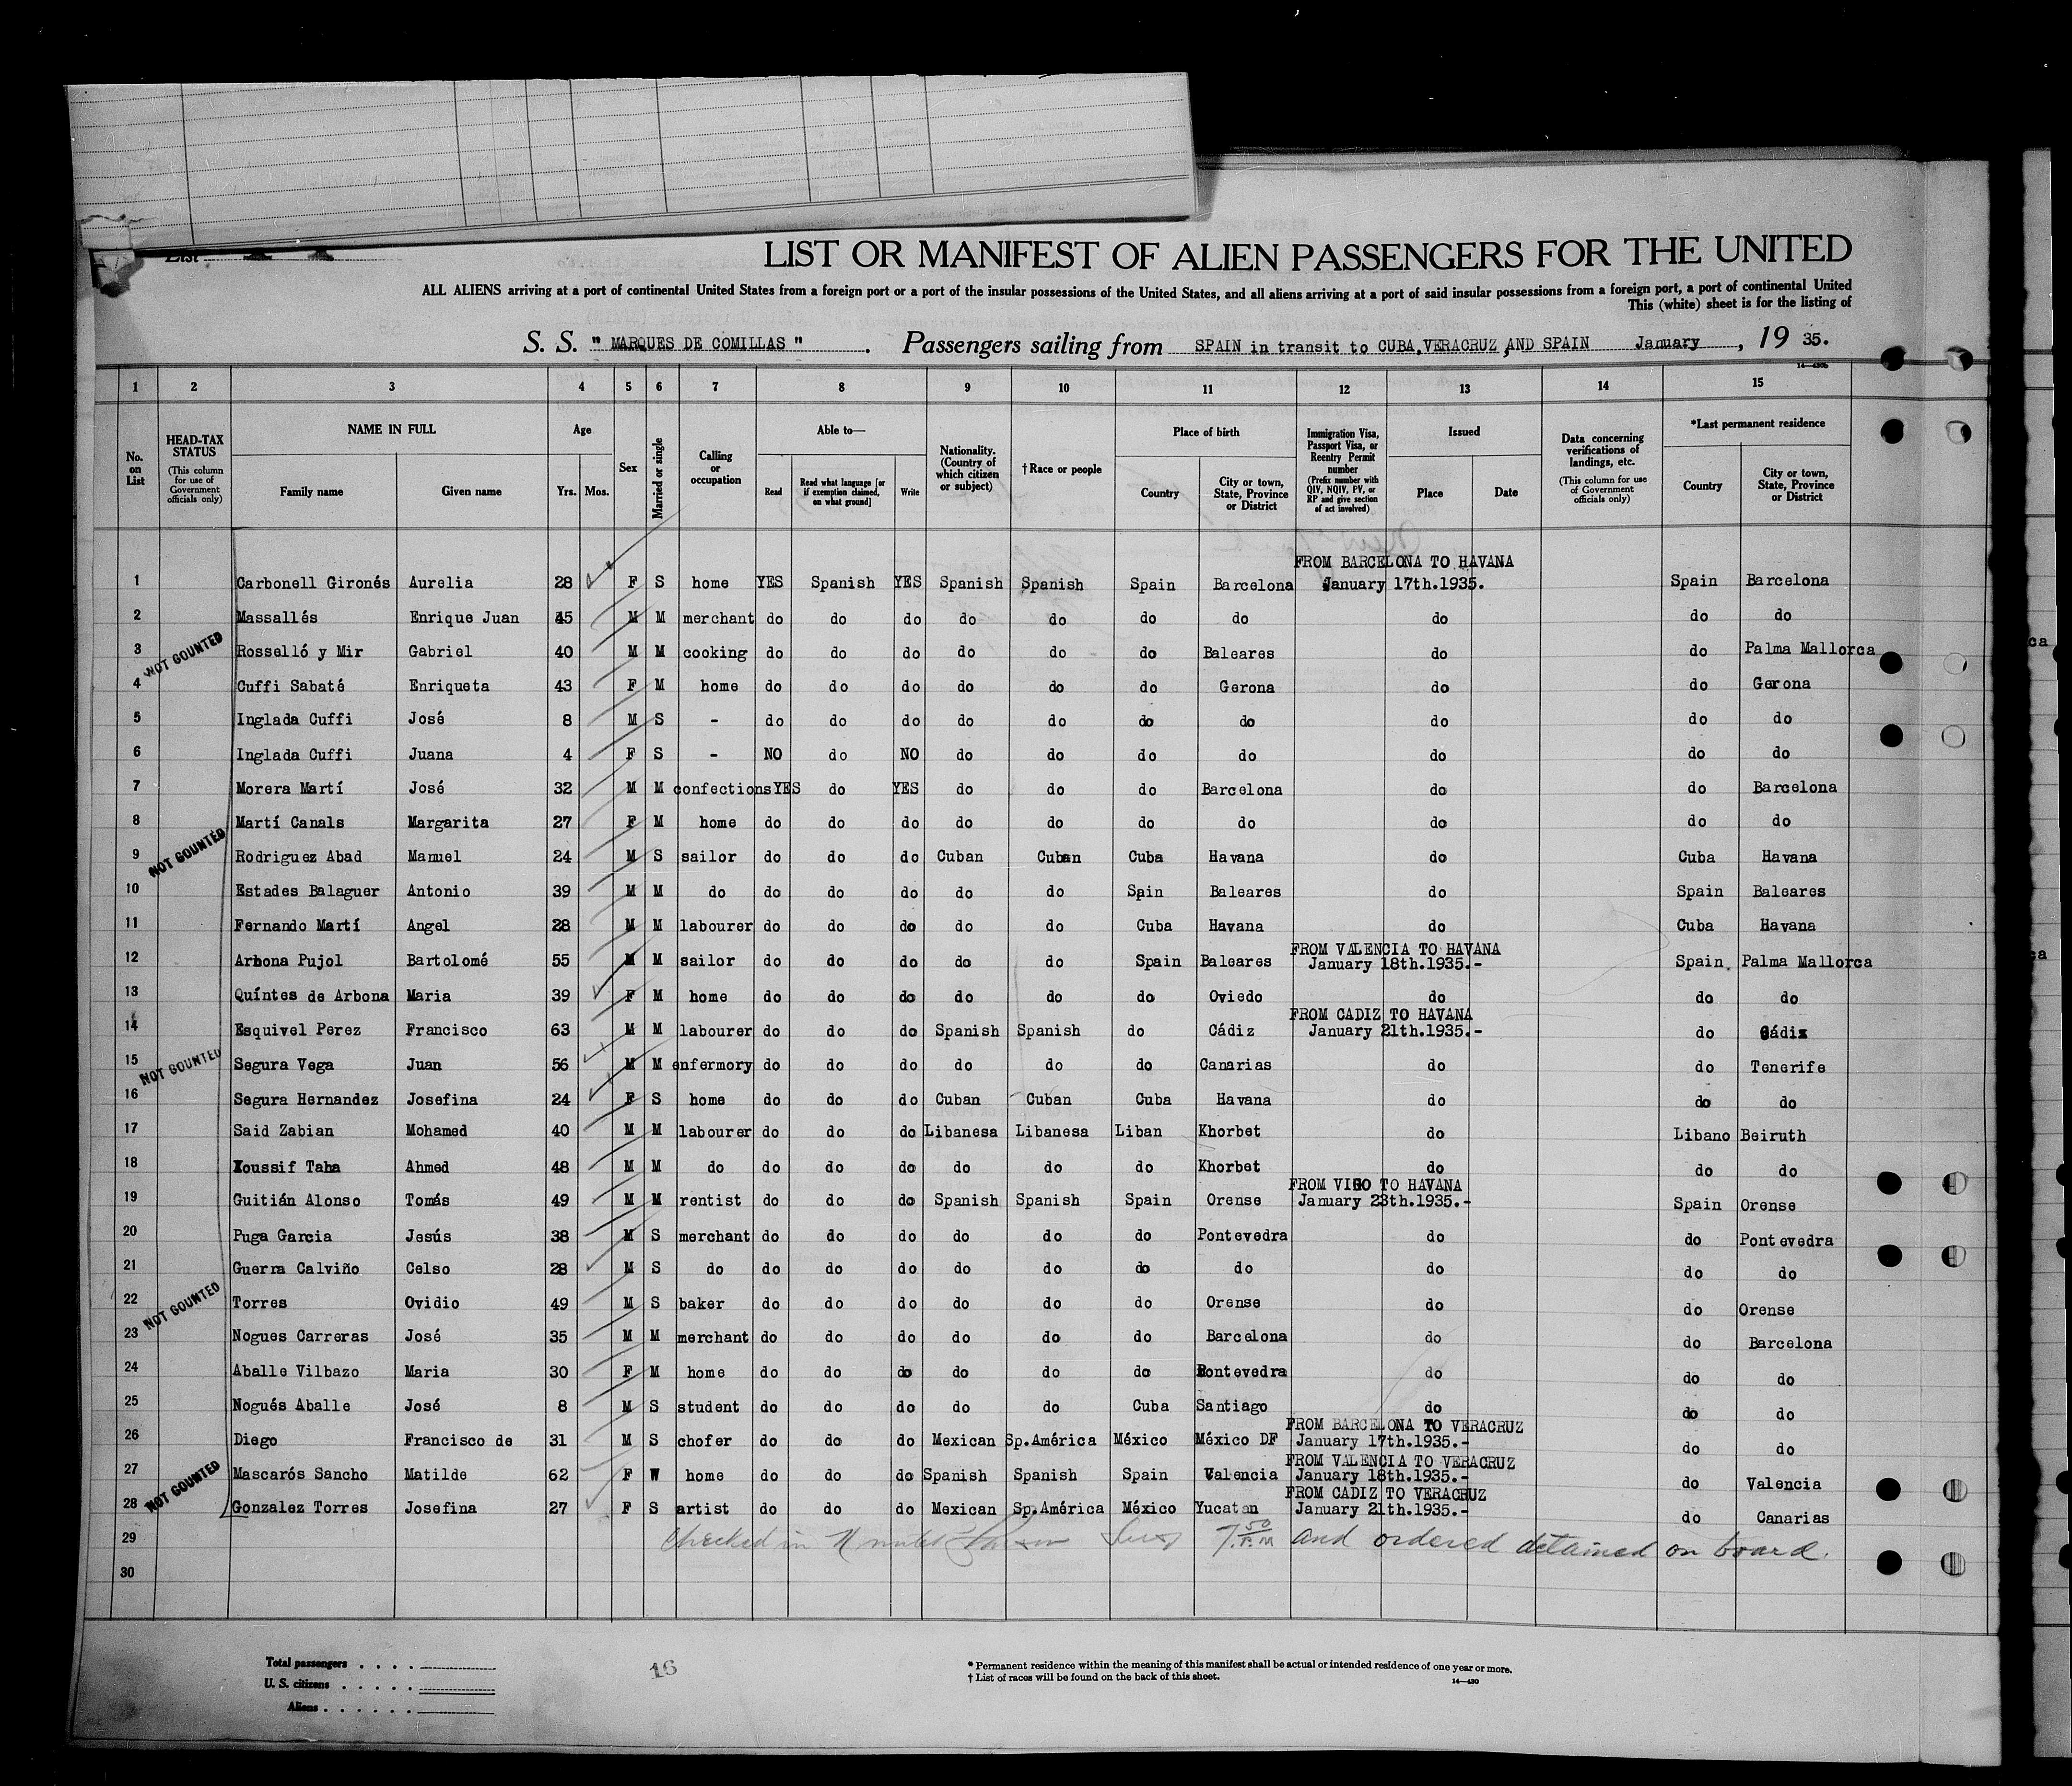 LIST OR MANIFEST OF ALIEN PASSENGERS FOR THE UNITED
ALL ALIENS arriving at a port of continental United States from a foreign port or a port of the insular possessions of the United States, and all aliens arriving at a port of said insular possessions from a foreign port, a port of continental United
This (white) sheet is for the listing of
S. S. " MARQUES DE COMILLAS " . Passengers sailing from SPAIN in transit to CUBA,VERACRUZ AND SPAIN January , 19 35.
14—430b
1 2 3 4 5 6 7 8 9 10 11 12 13 14 15
No. on List
HEAD-TAX STATUS (This column for use of Government officials only)
NAME IN FULL
Family name Given name
Age
Yrs. Mos.
Sex
Married or single
Calling or occupation
Able to—
Read Read what language [or if exemption claimed, on what ground] Write
Nationality. (Country of which citizen or subject)
†Race or people
Place of birth
Country City or town, State, Province or District
Immigration Visa, Passport Visa, or Reentry Permit number (Prefix number with QIV, NQIV, PV, or RP and give section of act involved)
Issued
Place Date
Data concerning verifications of landings, etc. (This column for use of Government officials only)
*Last permanent residence
Country City or town, State, Province or District
FROM BARCELONA TO HAVANA
1 Carbonell Gironés Aurelia 28 F S home YES Spanish YES Spanish Spanish Spain Barcelona January 17th.1935. Spain Barcelona
2 Massallés Enrique Juan 45 M M merchant do do do do do do do do do do
NOT COUNTED
3 Rosselló y Mir Gabriel 40 M M cooking do do do do do do Baleares do do Palma Mallorca
4 Cuffi Sabaté Enriqueta 43 F M home do do do do do do Gerona do do Gerona
5 Inglada Cuffi José 8 M S - do do do do do do do do do do
6 Inglada Cuffi Juana 4 F S - NO do NO do do do do do do do
7 Morera Martí José 32 M M confections YES do YES do do do Barcelona do do Barcelona
8 Martí Canals Margarita 27 F M home do do do do do do do do do do
NOT COUNTED
9 Rodriguez Abad Manuel 24 M S sailor do do do Cuban Cuban Cuba Havana do Cuba Havana
10 Estades Balaguer Antonio 39 M M do do do do do do Spain Baleares do Spain Baleares
11 Fernando Martí Angel 28 M M labourer do do do do do Cuba Havana do Cuba Havana
FROM VALENCIA TO HAVANA
12 Arbona Pujol Bartolomé 55 M M sailor do do do do do Spain Baleares January 18th.1935.- Spain. Palma Mallorca
13 Quíntes de Arbona Maria 39 F M home do do do do do do Oviedo do do do
FROM CADIZ TO HAVANA
14 Esquivel Perez Francisco 63 M M labourer do do do Spanish Spanish do Cádiz January 21th.1935.- do Cádiz
NOT COUNTED
15 Segura Vega Juan 56 M M enfermory do do do do do do Canarias do do Tenerife
16 Segura Hernandez Josefina 24 F S home do do do Cuban Cuban Cuba Havana do do do
17 Said Zabian Mohamed 40 M M labourer do do do Libanesa Libanesa Liban Khorbet do Libano Beiruth
18 Youssif Taha Ahmed 48 M M do do do do do do do Khorbet do do do
FROM VIGO TO HAVANA
19 Guitián Alonso Tomás 49 M M rentist do do do Spanish Spanish Spain Orense January 23th.1935.- Spain Orense
20 Puga Garcia Jesús 38 M S merchant do do do do do do Pontevedra do do Pontevedra
21 Guerra Calviño Celso 28 M S do do do do do do do do do do do
NOT COUNTED
22 Torres Ovidio 49 M S baker do do do do do do Orense do do Orense
23 Nogues Carreras José 35 M M merchant do do do do do do Barcelona do do Barcelona
24 Aballe Vilbazo Maria 30 F M home do do do do do do Pontevedra do do do
25 Nogués Aballe José 8 M S student do do do do do Cuba Santiago do do do
FROM BARCELONA TO VERACRUZ
26 Diego Francisco de 31 M S chofer do do do Mexican Sp.América México México DF January 17th.1935.- do do
FROM VALENCIA TO VERACRUZ
27 Mascarós Sancho Matilde 62 F W home do do do Spanish Spanish Spain Valencia January 18th.1935.- do Valencia
NOT COUNTED
FROM CADIZ TO VERACRUZ
28 Gonzalez Torres Josefina 27 F S artist do do do Mexican Sp.América México Yucatan January 21th.1935.- do Canarias
29 Checked in 7 50 P.M and ordered detained on board.
30
Total passengers . . . .
U. S. citizens . . . . .
Aliens . . . . . .
16
* Permanent residence within the meaning of this manifest shall be actual or intended residence of one year or more.
† List of races will be found on the back of this sheet.
14—430